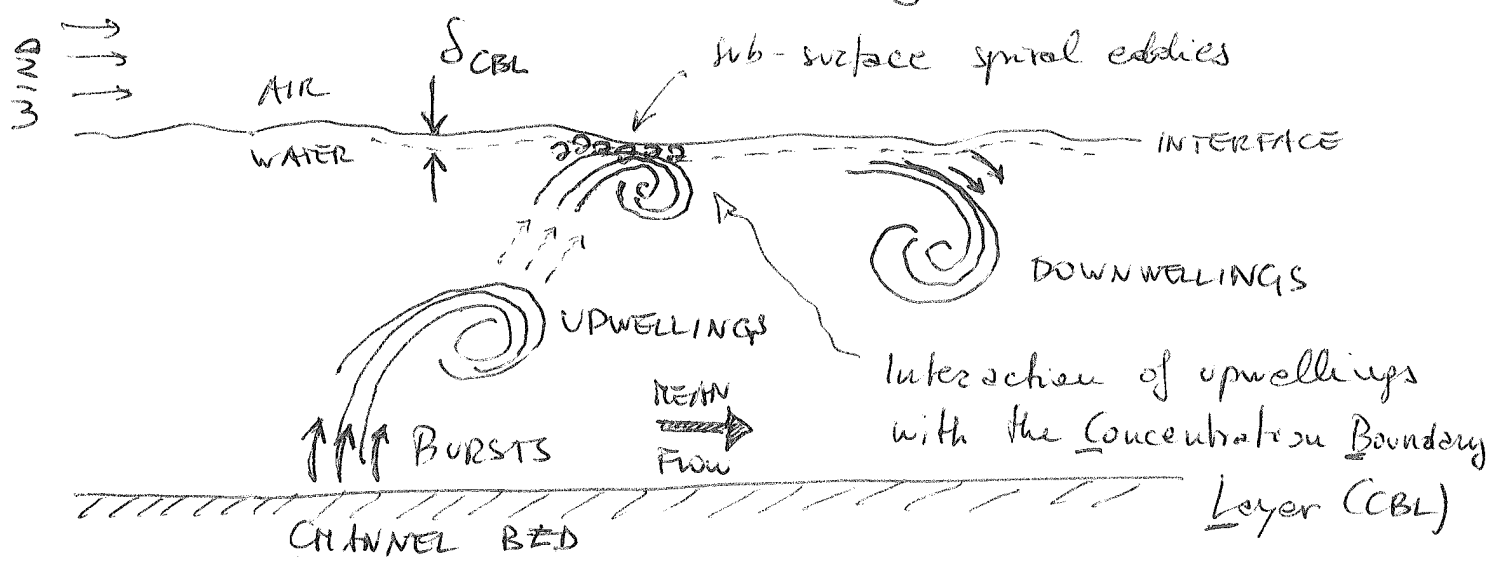 WIND
δCBL
sub-surface spiral eddies
AIR
WATER
INTERFACE
DOWNWELLINGS
UPWELLINGS
Interaction of upwellings
with the Concentration Boundary
Layer (CBL)
MEAN
FLOW
BURSTS
CHANNEL BED